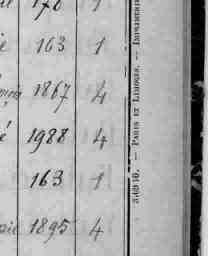 178 1
163 1
1867 4
é 1988 4
163 1
1895 4
IMPRIMERIE
— PARIS ET LIMOGES. —